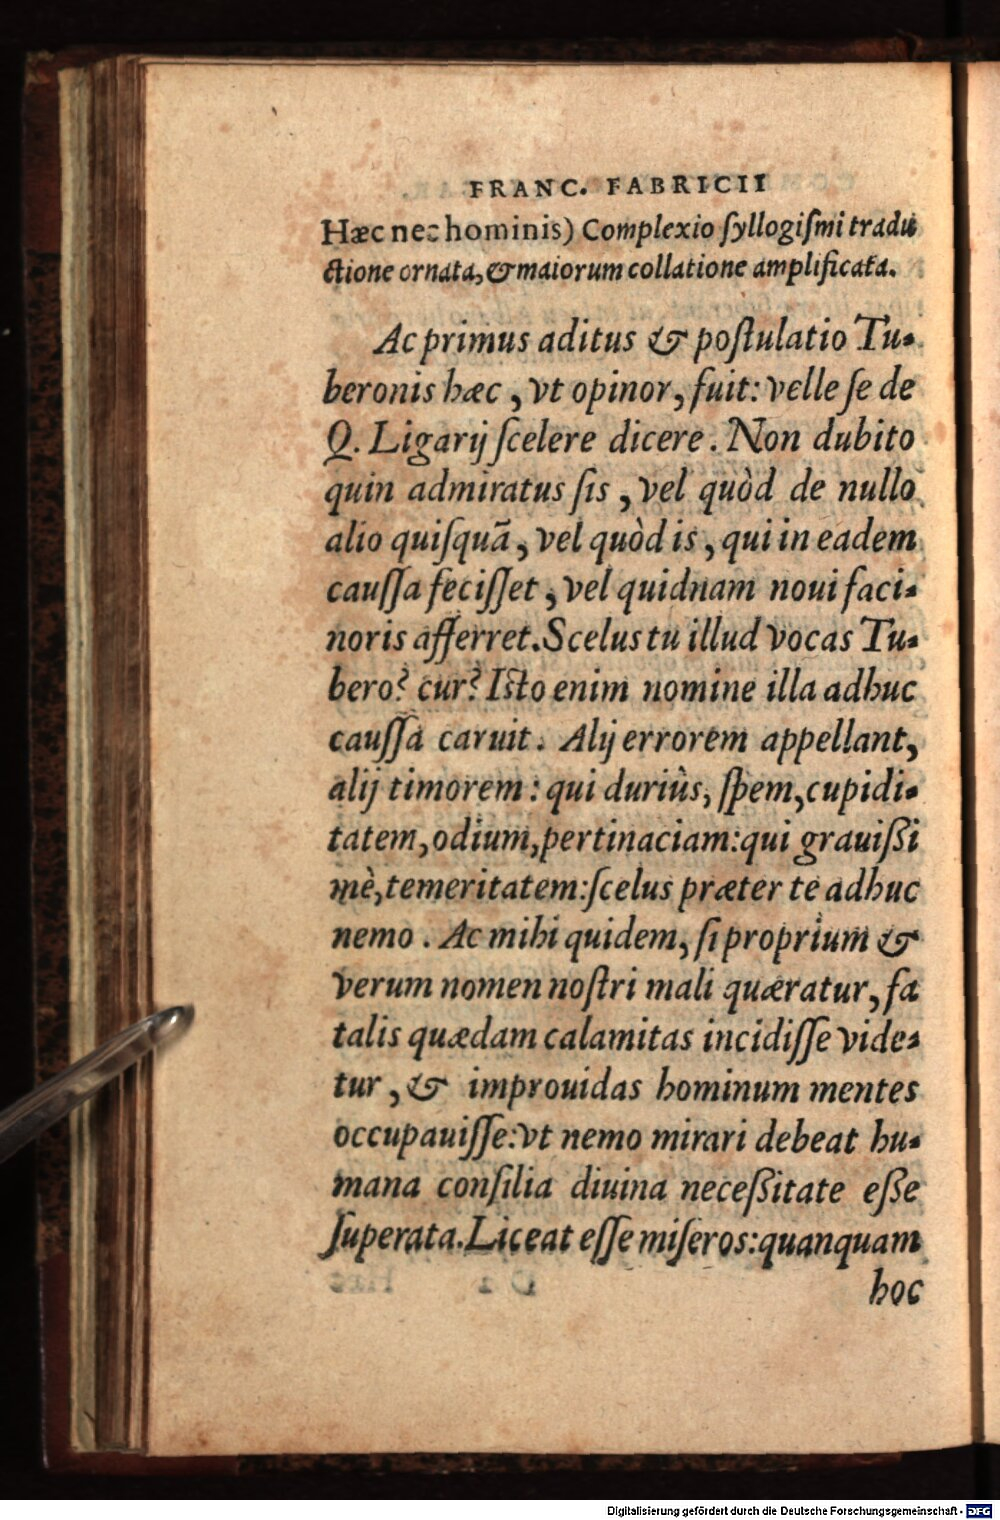 FRANC. FABRICII
Hæc nec hominis) Complexio ſyllogiſmi tradu
ctione ornata, & maiorum collatione amplificata.
Ac primus aditus & poſtulatio Tu-
beronis hæc, vt opinor, fuit: velle ſe de
Q. Ligarij ſcelere dicere. Non dubito
quin admiratus ſis, vel quòd de nullo
alio quiſquā, vel quòd is, qui in eadem
cauſſa feciſſet, vel quidnam noui faci-
noris afferret. Scelus tu illud vocas Tu-
bero? cur? Iſto enim nomine illa adhuc
cauſſa caruit. Alij errorem appellant,
alij timorem: qui duriùs, ſpem, cupidi-
tatem, odium, pertinaciam: qui grauiſſi
mè, temeritatem: ſcelus præter te adhuc
nemo. Ac mihi quidem, ſi proprium &
verum nomen noſtri mali quæratur, fa
talis quædam calamitas incidiſſe vide-
tur, & improuidas hominum mentes
occupauiſſe: vt nemo mirari debeat hu-
mana conſilia diuina neceſſitate eſſe
ſuperata. Liceat eſſe miſeros: quanquam
hoc
Digitalisierung gefördert durch die Deutsche Forschungsgemeinschaft - DFG